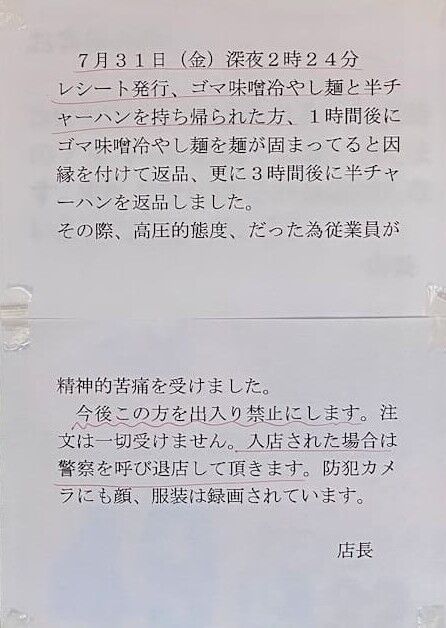 ７月３１日（金）深夜２時２４分
レシート発行、ゴマ味噌冷やし麺と半チ
ャーハンを持ち帰られた方、１時間後に
ゴマ味噌冷やし麺を麺が固まってると因
縁を付けて返品、更に３時間後に半チャ
ーハンを返品しました。
その際、高圧的態度、だった為従業員が
精神的苦痛を受けました。
今後この方を出入り禁止にします。注
文は一切受けません。入店された場合は
警察を呼び退店して頂きます。防犯カメ
ラにも顔、服装は録画されています。
店長